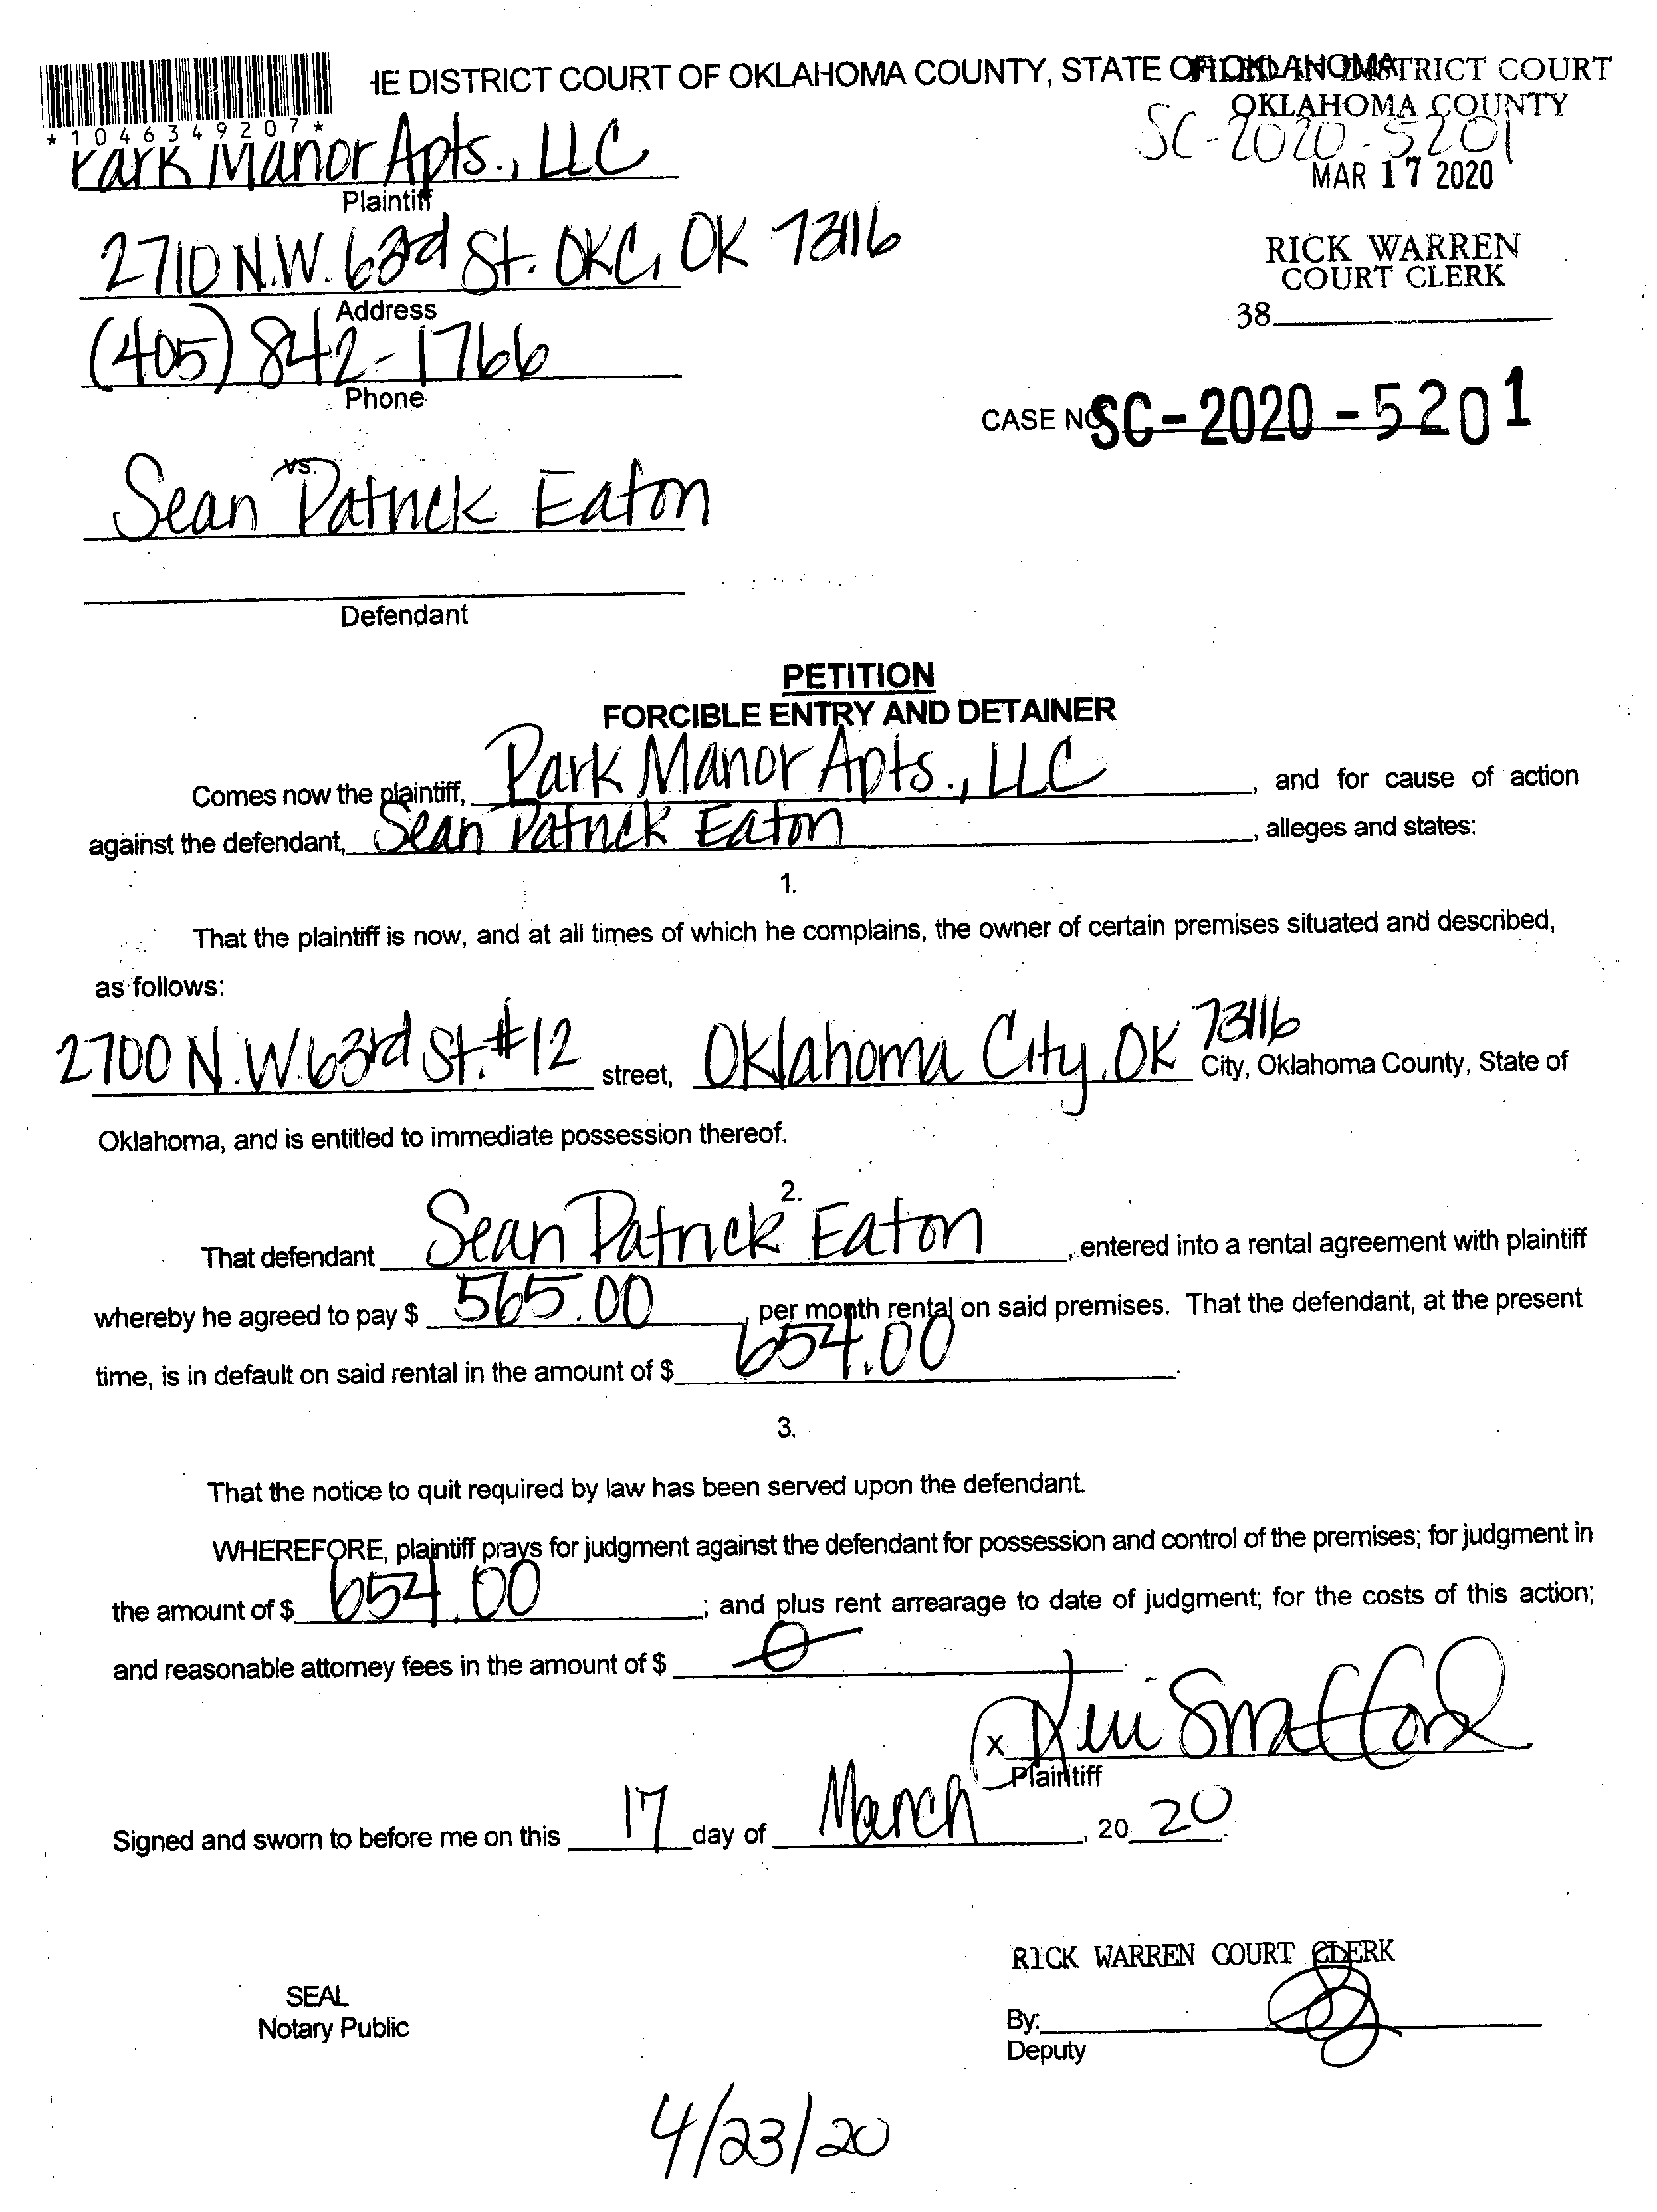 IE DISTRICT COURT OF OKLAHOMA COUNTY, STATE OF OKLAHOMA
FILED IN DISTRICT COURT
OKLAHOMA COUNTY
*1046349207*
SC-2020-5201
Park Manor Apts., LLC
MAR 17 2020
Plaintiff
2710 N.W. 63rd St. OKC, OK 73116
RICK WARREN
COURT CLERK
Address
38
(405) 842-1766
Phone
CASE NO SC-2020-5201
vs.
Sean Patrick Eaton
Defendant
PETITION
FORCIBLE ENTRY AND DETAINER
Comes now the plaintiff, Park Manor Apts., LLC, and for cause of action
against the defendant, Sean Patrick Eaton, alleges and states:
1.
That the plaintiff is now, and at all times of which he complains, the owner of certain premises situated and described,
as follows:
2700 N.W. 63rd St. #12 street, Oklahoma City, OK 73116 City, Oklahoma County, State of
Oklahoma, and is entitled to immediate possession thereof.
2.
That defendant Sean Patrick Eaton, entered into a rental agreement with plaintiff
whereby he agreed to pay $ 565.00, per month rental on said premises. That the defendant, at the present
time, is in default on said rental in the amount of $ 654.00.
3.
That the notice to quit required by law has been served upon the defendant.
WHEREFORE, plaintiff prays for judgment against the defendant for possession and control of the premises; for judgment in
the amount of $ 654.00; and plus rent arrearage to date of judgment; for the costs of this action;
and reasonable attorney fees in the amount of $ 0
x
Plaintiff
Signed and sworn to before me on this 17 day of March, 20 20.
RICK WARREN COURT CLERK
SEAL
Notary Public
By:
Deputy
4/23/20